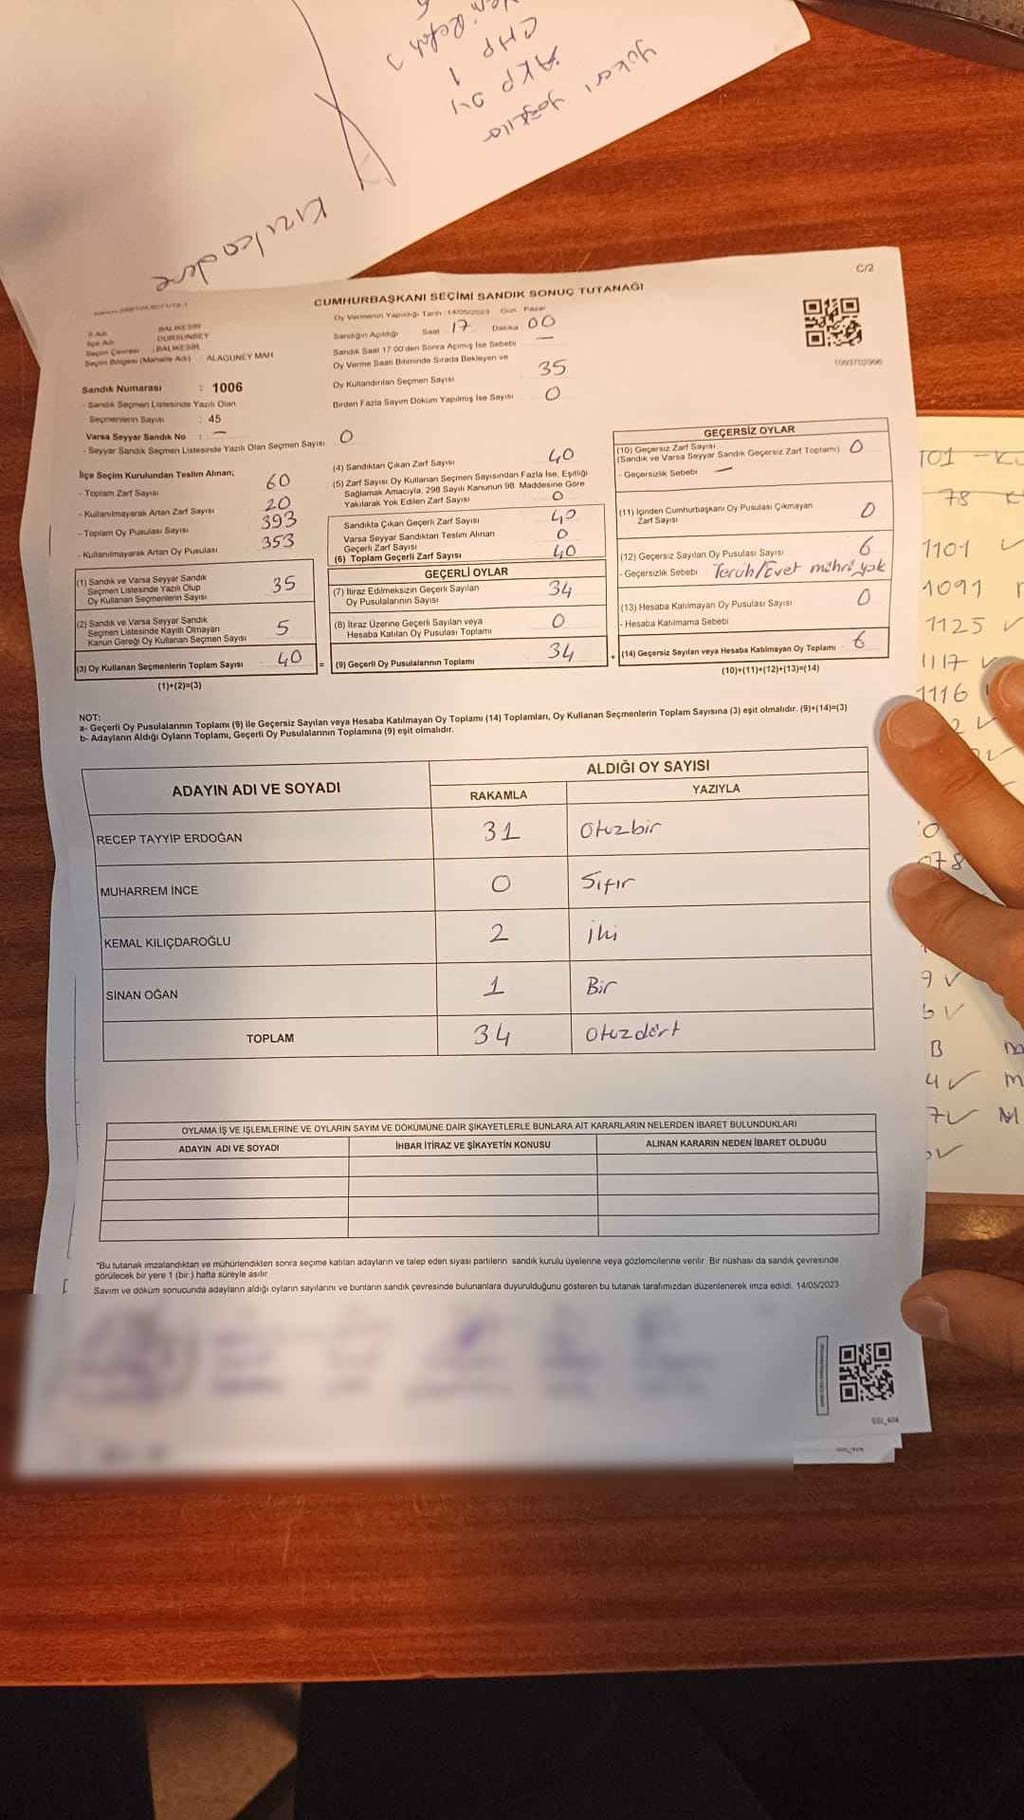 yukarı yağcılar
AKP 04
CHP 1
Yen. Refah 3
Kızılcadere
C/2
CUMHURBAŞKANI SEÇİMİ SANDIK SONUÇ TUTANAĞI
İl Adı : BALIKESİR
İlçe Adı : DURSUNBEY
Seçim Çevresi : BALIKESİR
Seçim Bölgesi (Mahalle Adı) : ALAGÜNEY MAH
Sandık Numarası : 1006
- Sandık Seçmen Listesinde Yazılı Olan
Seçmenlerin Sayısı : 45
Varsa Seyyar Sandık No : —
- Seyyar Sandık Seçmen Listesinde Yazılı Olan Seçmen Sayısı 0
Oy Vermenin Yapıldığı Tarih : 14/05/2023 Gün : Pazar
Sandığın Açıldığı Saat 17 Dakika 00
Sandık Saat 17:00'den Sonra Açılmış İse Sebebi —
Oy Verme Saati Bitiminde Sırada Bekleyen ve
Oy Kullandırılan Seçmen Sayısı 35
Birden Fazla Sayım Döküm Yapılmış İse Sayısı 0
İlçe Seçim Kurulundan Teslim Alınan;
- Toplam Zarf Sayısı 60
- Kullanılmayarak Artan Zarf Sayısı 20
- Toplam Oy Pusulası Sayısı 393
- Kullanılmayarak Artan Oy Pusulası 353
(1) Sandık ve Varsa Seyyar Sandık
Seçmen Listesinde Yazılı Olup
Oy Kullanan Seçmenlerin Sayısı 35
(2) Sandık ve Varsa Seyyar Sandık
Seçmen Listesinde Kayıtlı Olmayan
Kanun Gereği Oy Kullanan Seçmen Sayısı 5
(3) Oy Kullanan Seçmenlerin Toplam Sayısı 40 =
(1)+(2)=(3)
(4) Sandıktan Çıkan Zarf Sayısı 40
(5) Zarf Sayısı Oy Kullanan Seçmen Sayısından Fazla İse, Eşitliği
Sağlamak Amacıyla, 298 Sayılı Kanunun 98. Maddesine Göre
Yakılarak Yok Edilen Zarf Sayısı 0
Sandıkta Çıkan Geçerli Zarf Sayısı 40
Varsa Seyyar Sandıktan Teslim Alınan
Geçerli Zarf Sayısı 0
(6) Toplam Geçerli Zarf Sayısı 40
GEÇERLİ OYLAR
(7) İtiraz Edilmeksizin Geçerli Sayılan
Oy Pusulalarının Sayısı 34
(8) İtiraz Üzerine Geçerli Sayılan veya
Hesaba Katılan Oy Pusulası Toplamı 0
(9) Geçerli Oy Pusulalarının Toplamı 34 +
GEÇERSİZ OYLAR
(10) Geçersiz Zarf Sayısı
(Sandık ve Varsa Seyyar Sandık Geçersiz Zarf Toplamı) 0
- Geçersizlik Sebebi —
(11) İçinden Cumhurbaşkanı Oy Pusulası Çıkmayan
Zarf Sayısı 0
(12) Geçersiz Sayılan Oy Pusulası Sayısı 6
- Geçersizlik Sebebi Tercih/Evet mührü yok
(13) Hesaba Katılmayan Oy Pusulası Sayısı 0
- Hesaba Katılmama Sebebi
(14) Geçersiz Sayılan veya Hesaba Katılmayan Oy Toplamı 6
(10)+(11)+(12)+(13)=(14)
NOT:
a- Geçerli Oy Pusulalarının Toplamı (9) ile Geçersiz Sayılan veya Hesaba Katılmayan Oy Toplamı (14) Toplamları, Oy Kullanan Seçmenlerin Toplam Sayısına (3) eşit olmalıdır. (9)+(14)=(3)
b- Adayların Aldığı Oyların Toplamı, Geçerli Oy Pusulalarının Toplamına (9) eşit olmalıdır.
ADAYIN ADI VE SOYADI ALDIĞI OY SAYISI
RAKAMLA YAZIYLA
RECEP TAYYİP ERDOĞAN 31 Otuzbir
MUHARREM İNCE 0 Sıfır
KEMAL KILIÇDAROĞLU 2 iki
SİNAN OĞAN 1 Bir
TOPLAM 34 Otuzdört
OYLAMA İŞ VE İŞLEMLERİNE VE OYLARIN SAYIM VE DÖKÜMÜNE DAİR ŞİKAYETLERLE BUNLARA AİT KARARLARIN NELERDEN İBARET BULUNDUKLARI
ADAYIN ADI VE SOYADI İHBAR İTİRAZ VE ŞİKAYETİN KONUSU ALINAN KARARIN NEDEN İBARET OLDUĞU
*Bu tutanak imzalandıktan ve mühürlendikten sonra seçime katılan adayların ve talep eden siyasi partilerin sandık kurulu üyelerine veya gözlemcilerine verilir. Bir nüshası da sandık çevresinde
görülecek bir yere 1 (bir) hafta süreyle asılır
Sayım ve döküm sonucunda adayların aldığı oyların sayılarını ve bunların sandık çevresinde bulunanlara duyurulduğunu gösteren bu tutanak tarafımızdan düzenlenerek imza edildi. 14/05/2023
78
1101 ✓
1091
1125 ✓
1117 ✓
1116